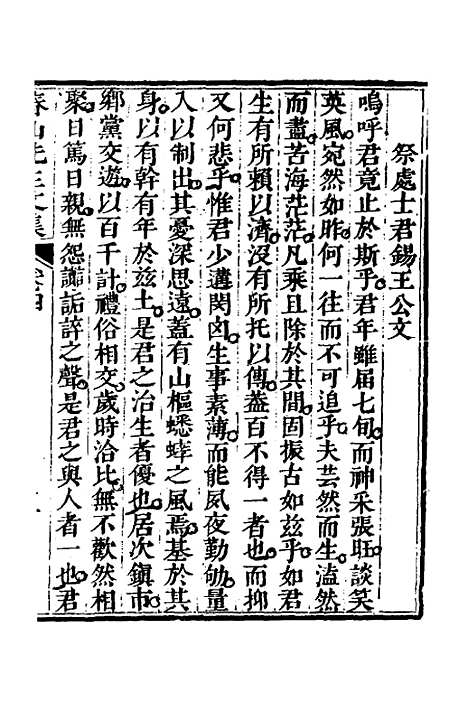 祭處士君錫王公文
嗚呼君竟止於斯乎君年雖届七旬而神采張旺談笑
英風宛然如昨何一往而不可追乎夫芸然而生溘然
而盡苦海茫茫凡乘且除於其間固振古如兹乎如君
生有所賴以濟沒有所托以傳葢百不得一者也而抑
又何悲乎惟君少遘閔凶生事素薄而能夙夜勤劬量
入以制出其憂深思遠蓋有山樞蟋蟀之風焉基於其
身以有幹有年於兹土是君之治生者優也居次鎮市
鄉黨交遊以百千計禮俗相交歲時洽比無不歡然相
聚日篤日親無怨誹詬誶之聲是君之與人者一也君
山先生文集 卷四